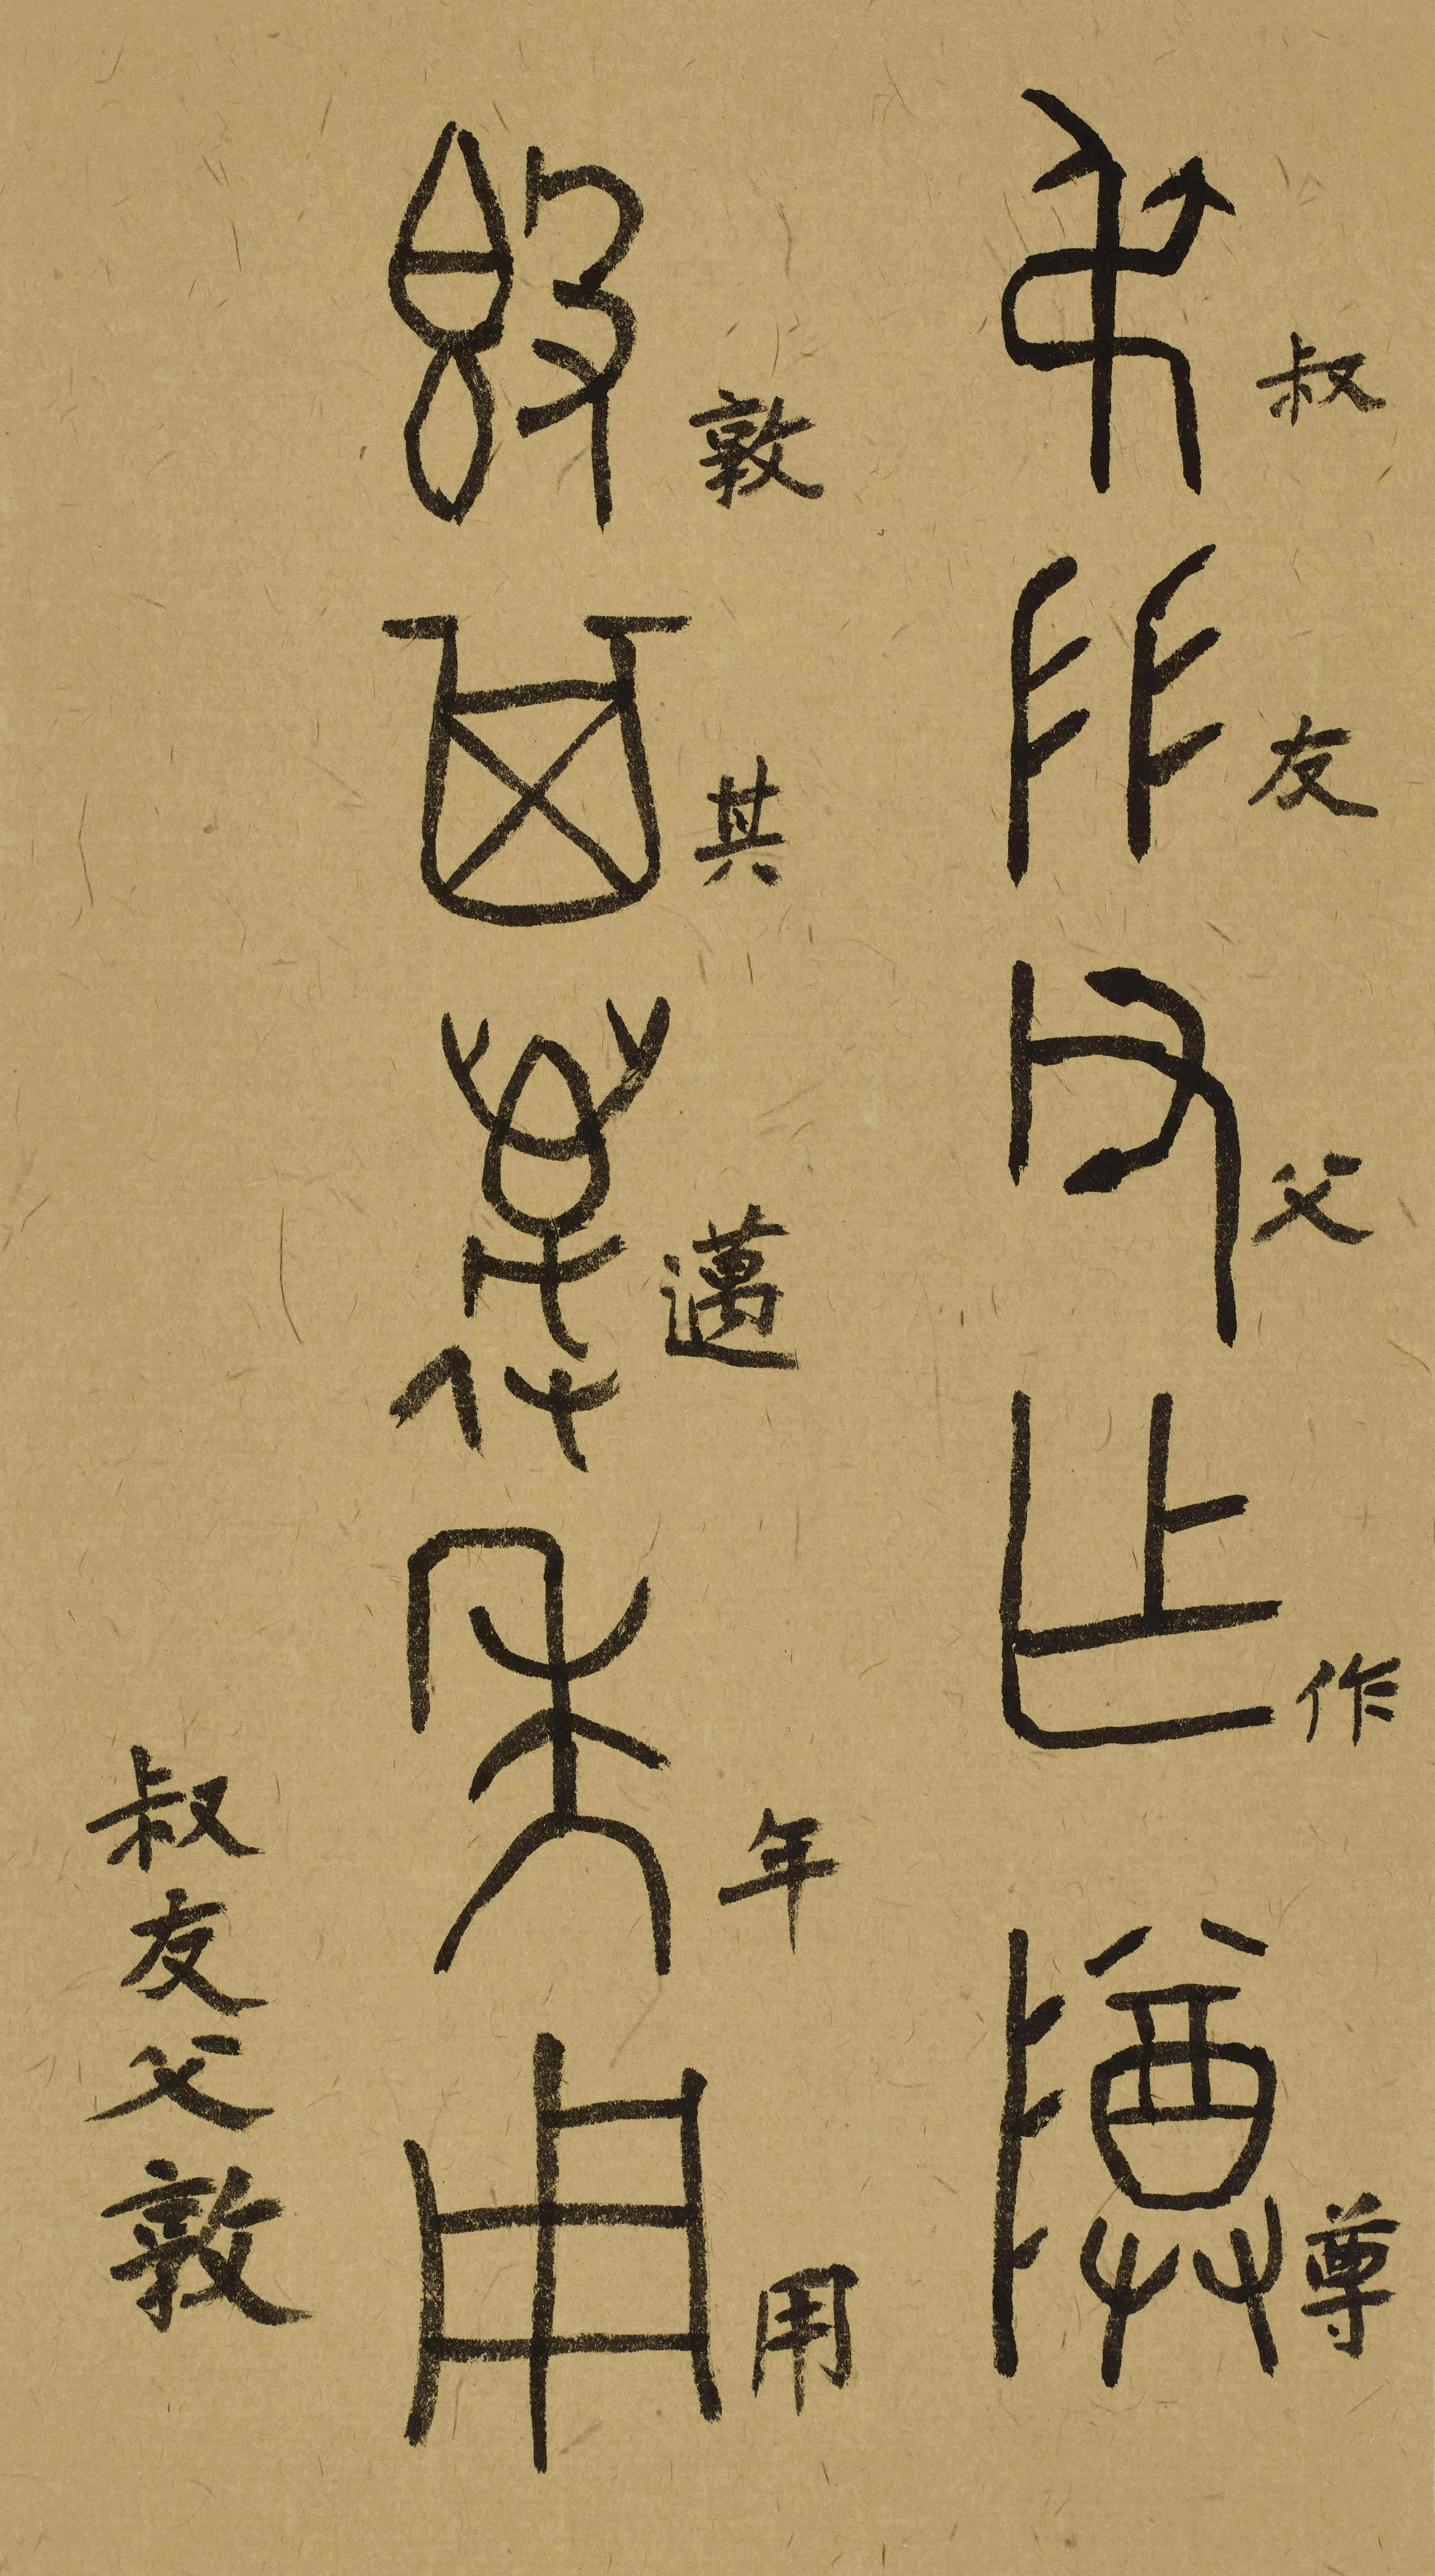 叔友父作尊
敦其邁年用
叔友父敦